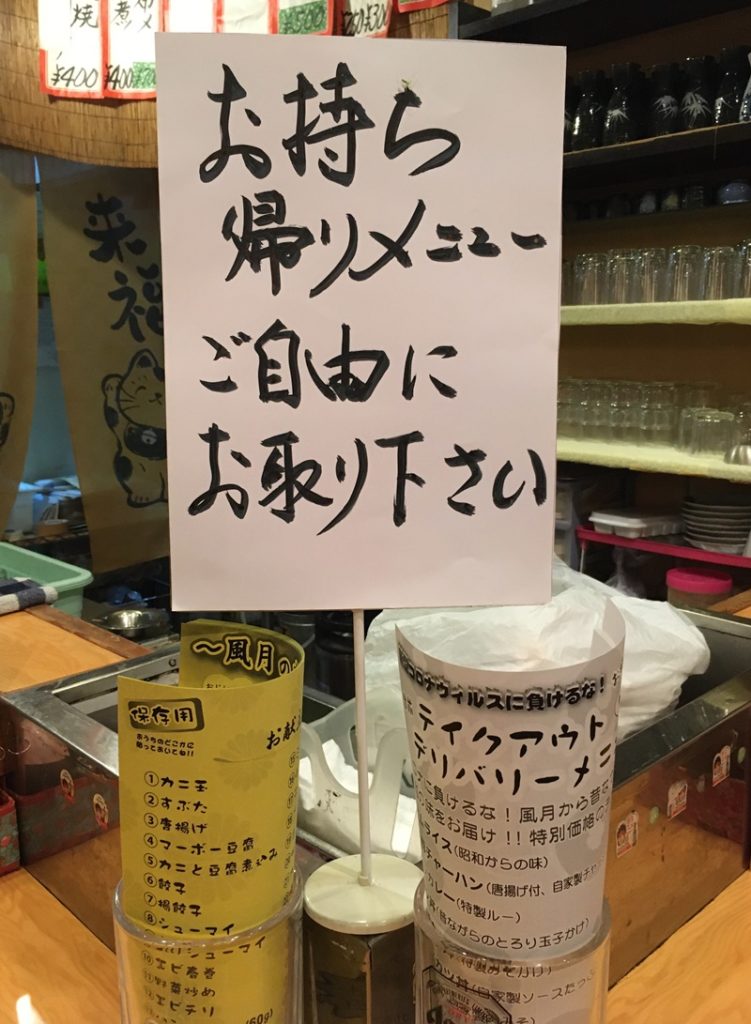 焼
¥400
¥400
¥500
お持ち
帰りメニュー
ご自由に
お取り下さい
来福
〜風月の
保存用
おうちのどこかに
貼っておいてね!!
①カニ玉
②すぶた
③唐揚げ
④マーボー豆腐
⑤カニと豆腐煮込み
⑥餃子
⑦揚餃子
⑧シューマイ
シューマイ
⑩エビ春巻
⑪野菜炒め
⑫エビチリ
(60g)
コロナウィルスに負けるな!
テイクアウト
デリバリーメニ
に負けるな!風月から昔な
味をお届け!!特別価格の
ライス(昭和からの味)
チャーハン(唐揚げ付、自家製チャ
カレー(特製ルー)
(昔ながらのとろり玉子かけ)
カツ丼(自家製ソースたっぷ